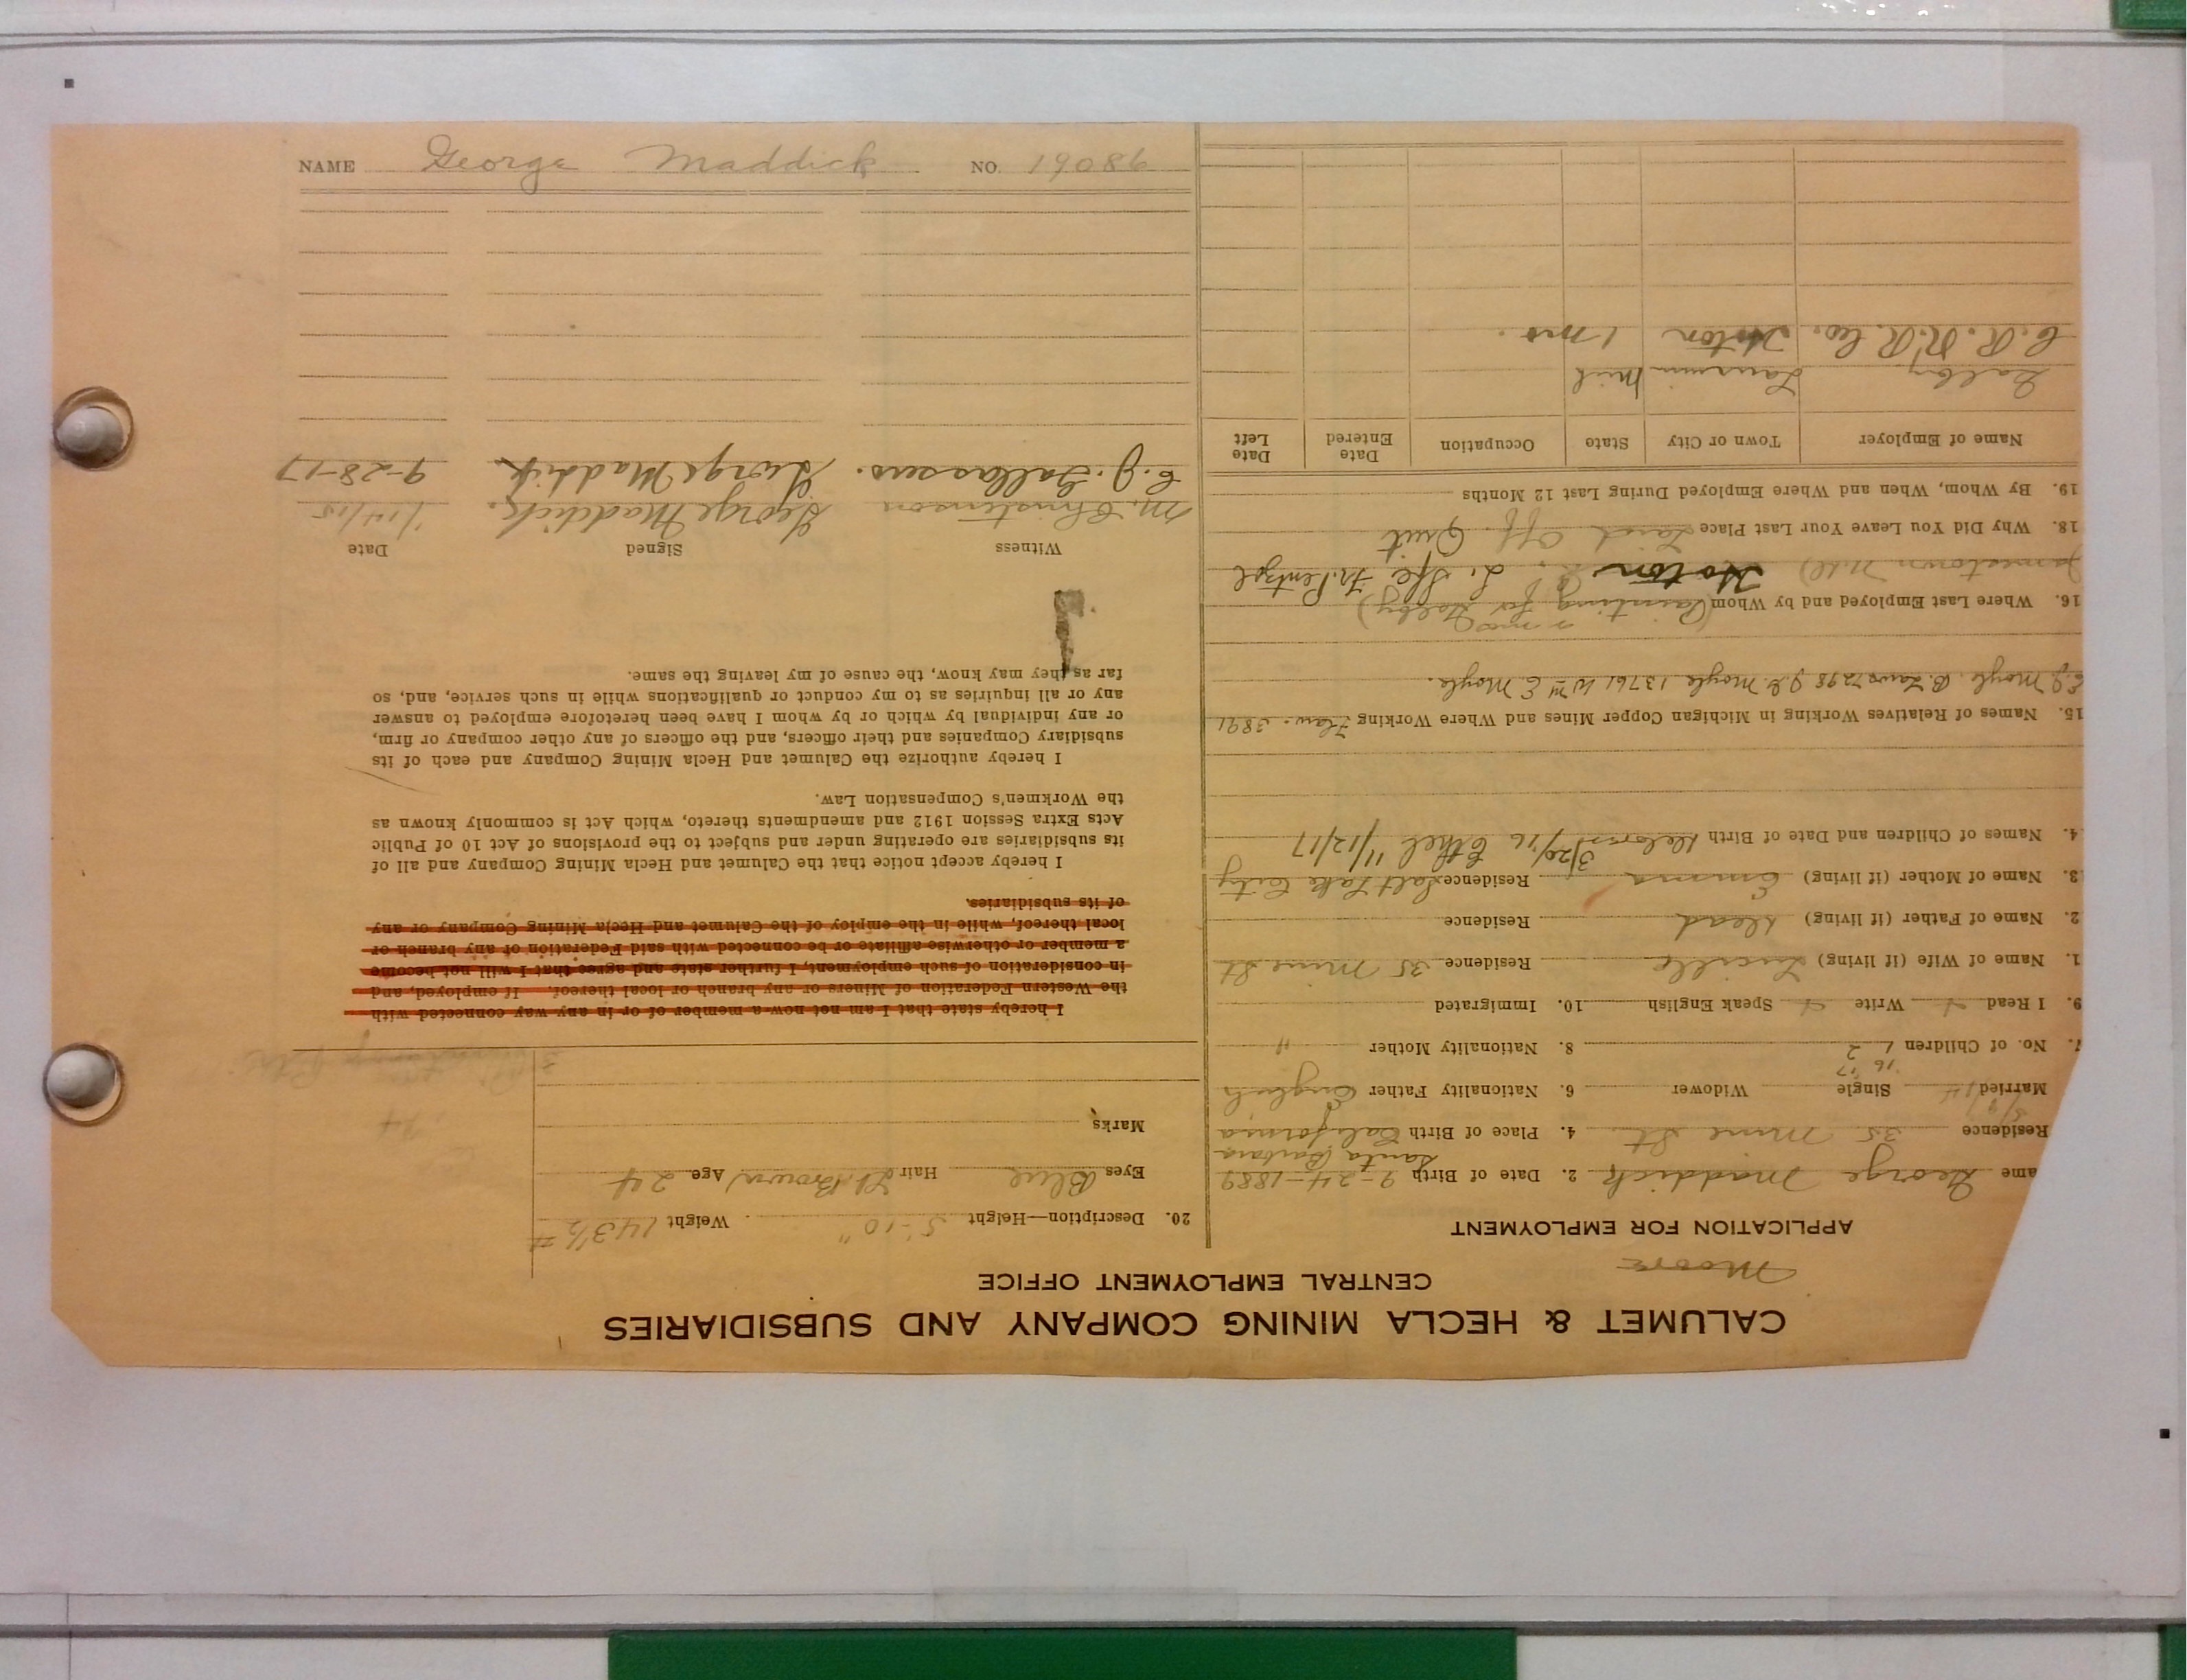 NAME George Maddick NO. 19086
CALUMET & HECLA MINING COMPANY AND SUBSIDIARIES
CENTRAL EMPLOYMENT OFFICE
Moore
APPLICATION FOR EMPLOYMENT
ame George Maddick 2. Date of Birth 9-24-1889
Santa Barbara
Residence 35 Mine St. 4. Place of Birth California
Married Single Widower 6. Nationality Father English
16 17
7. No. of Children 1 2 8. Nationality Mother "
9. I Read Write Speak English 10. Immigrated
1. Name of Wife (if living) Lucille Residence 35 Mine St
2. Name of Father (if living) Dead Residence
3. Name of Mother (if living) Emma Residence Salt Lake City
4. Names of Children and Date of Birth 3/20/16 Ethel 11/12/17
15. Names of Relatives Working in Michigan Copper Mines and Where Working 3891
E.J. Moyle B. Laws 7298 J.C. Moyle 13761 Wm E Moyle.
16. Where Last Employed and by Whom (Painting for Galby)
Jamestown Hoton
18. Why Did You Leave Your Last Place Laid Off. Quit
19. By Whom, When and Where Employed During Last 12 Months
Name of Employer Town or City State Occupation Date Entered Date Left
Galby Laurium Mich
C. R. R. R. Co. Hoton 1 mo.
20. Description—Height 5'-10" Weight 143½ #
Eyes Blue Hair Lt. Brown Age 24
Marks
I hereby state that I am not now a member of or in any way connected with
the Western Federation of Miners or any branch or local thereof. If employed, and
in consideration of such employment, I further state and agree that I will not become
a member or otherwise affiliate or be connected with said Federation of any branch or
local thereof, while in the employ of the Calumet and Hecla Mining Company or any
of its subsidiaries.
I hereby accept notice that the Calumet and Hecla Mining Company and all of
its subsidiaries are operating under and subject to the provisions of Act 10 of Public
Acts Extra Session 1912 and amendments thereto, which Act is commonly known as
the Workmen's Compensation Law.
I hereby authorize the Calumet and Hecla Mining Company and each of its
subsidiary Companies and their officers, and the officers of any other company or firm,
or any individual by which or by whom I have been heretofore employed to answer
any or all inquiries as to my conduct or qualifications while in such service, and, so
far as they may know, the cause of my leaving the same.
Witness Signed Date
M. Christenson George Maddick. 1/14/15
C. J. George Maddick 9-28-17